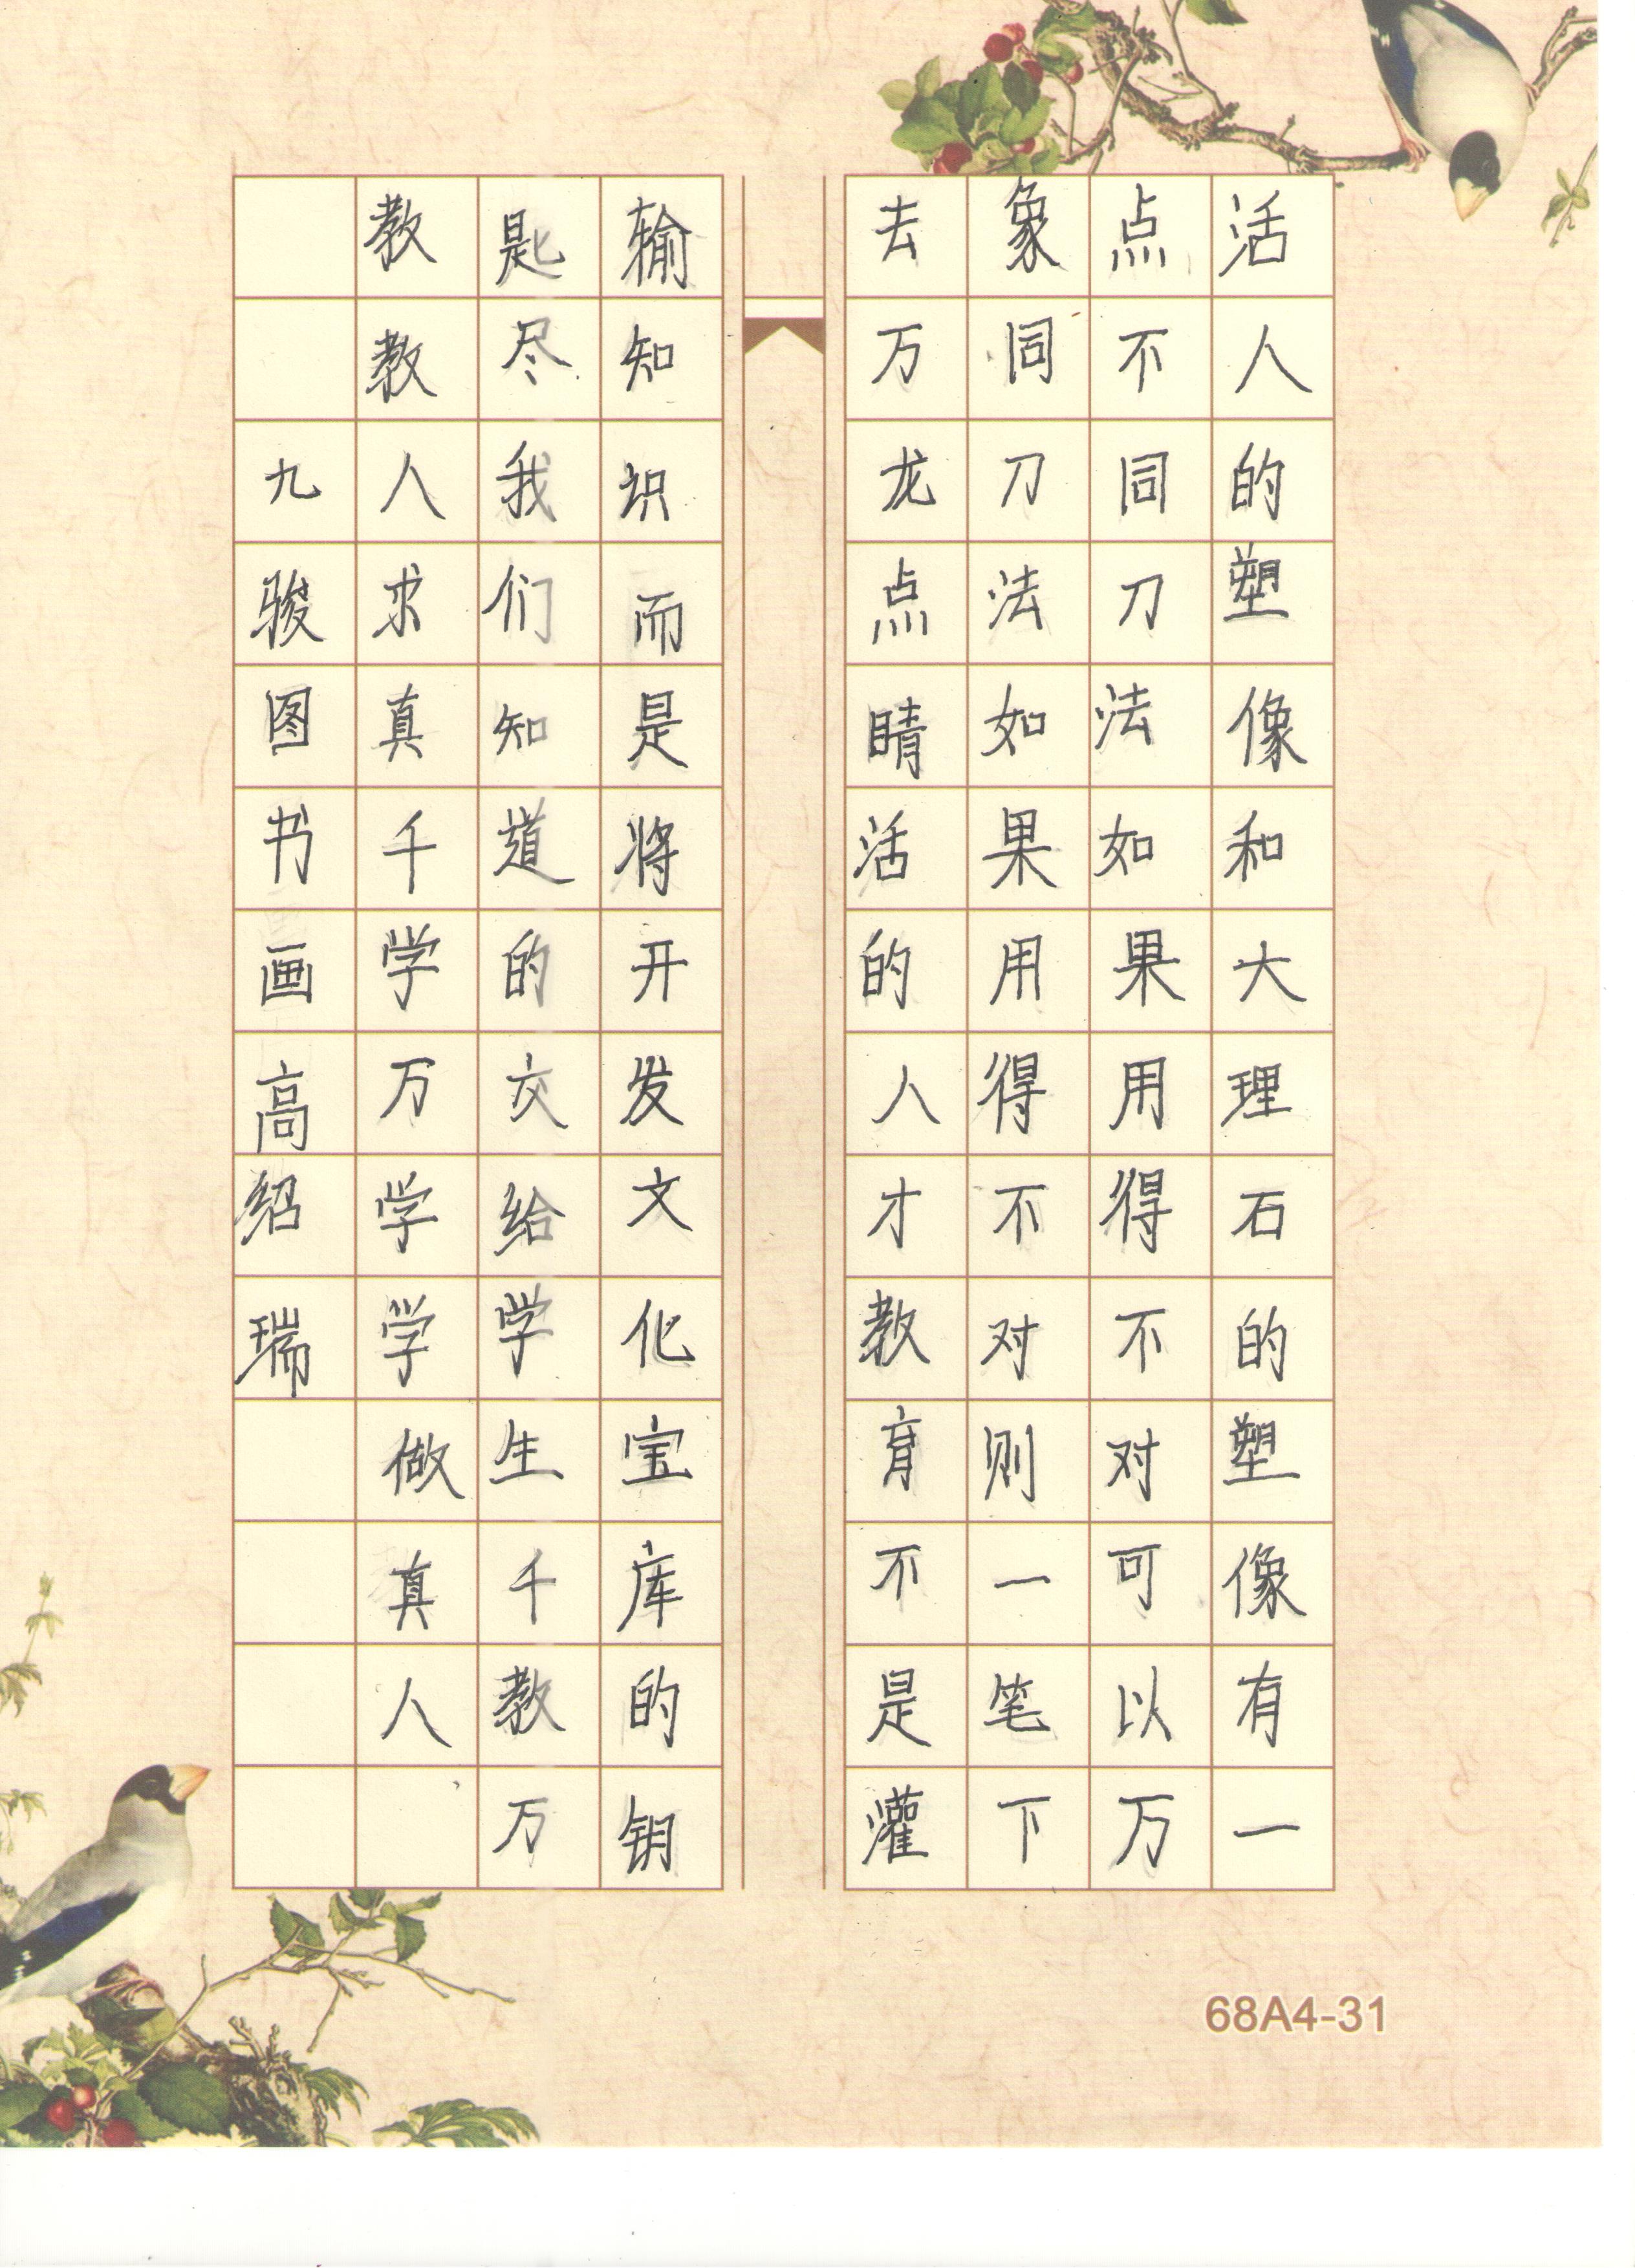 活人的塑像和大理石的塑像有一
点不同刀法如果用得不对可以万
象同刀法如果用得不对则一笔下
去万龙点睛活的人才教育不是灌
输知识而是将开发文化宝库的钥
匙尽我们知道的交给学生千教万
教教人求真千学万学学做真人
九骏图书画高绍瑞
68A4-31